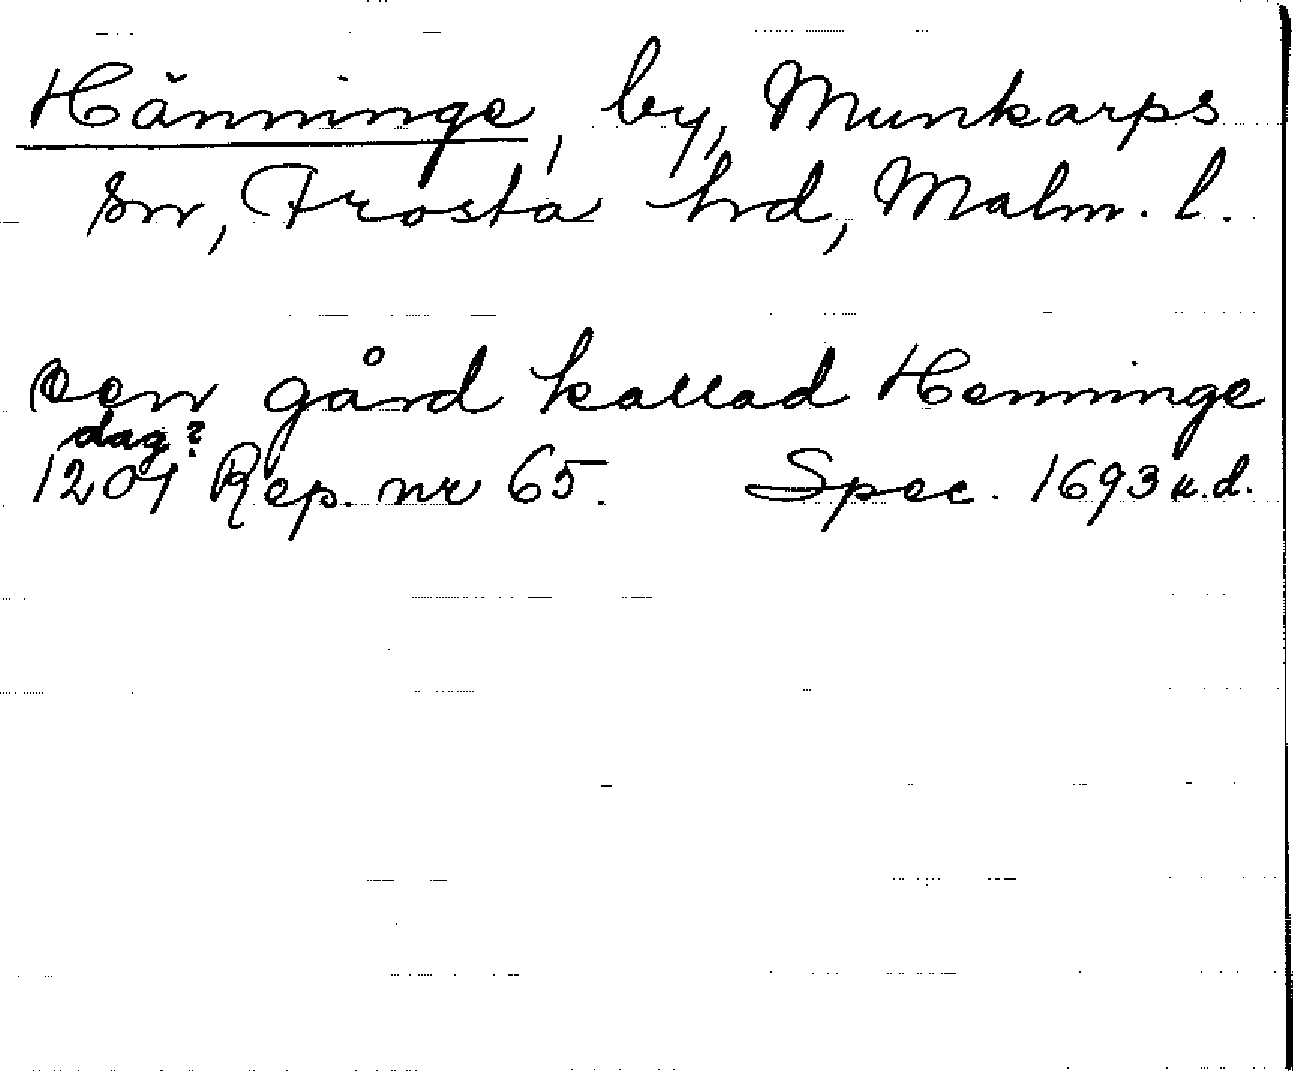 Hänninge, by, Munkarps
sn, Frosta hrd, Malm. l.
en gård kallad Henninge
dag?
1201 Rep. nr 65. Spec. 1693 u.d.